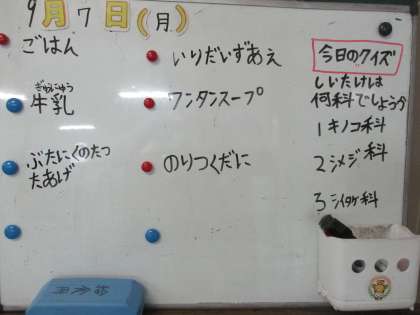 9月7日(月)
ごはん
ぎゅうにゅう
牛乳
ぶたにくのたつ
たあげ
いりだいずあえ
ワンタンスープ
のりつくだに
今日のクイズ
しいたけは
何科でしょうか
1 キノコ科
2 シメジ科
3 シイタケ科